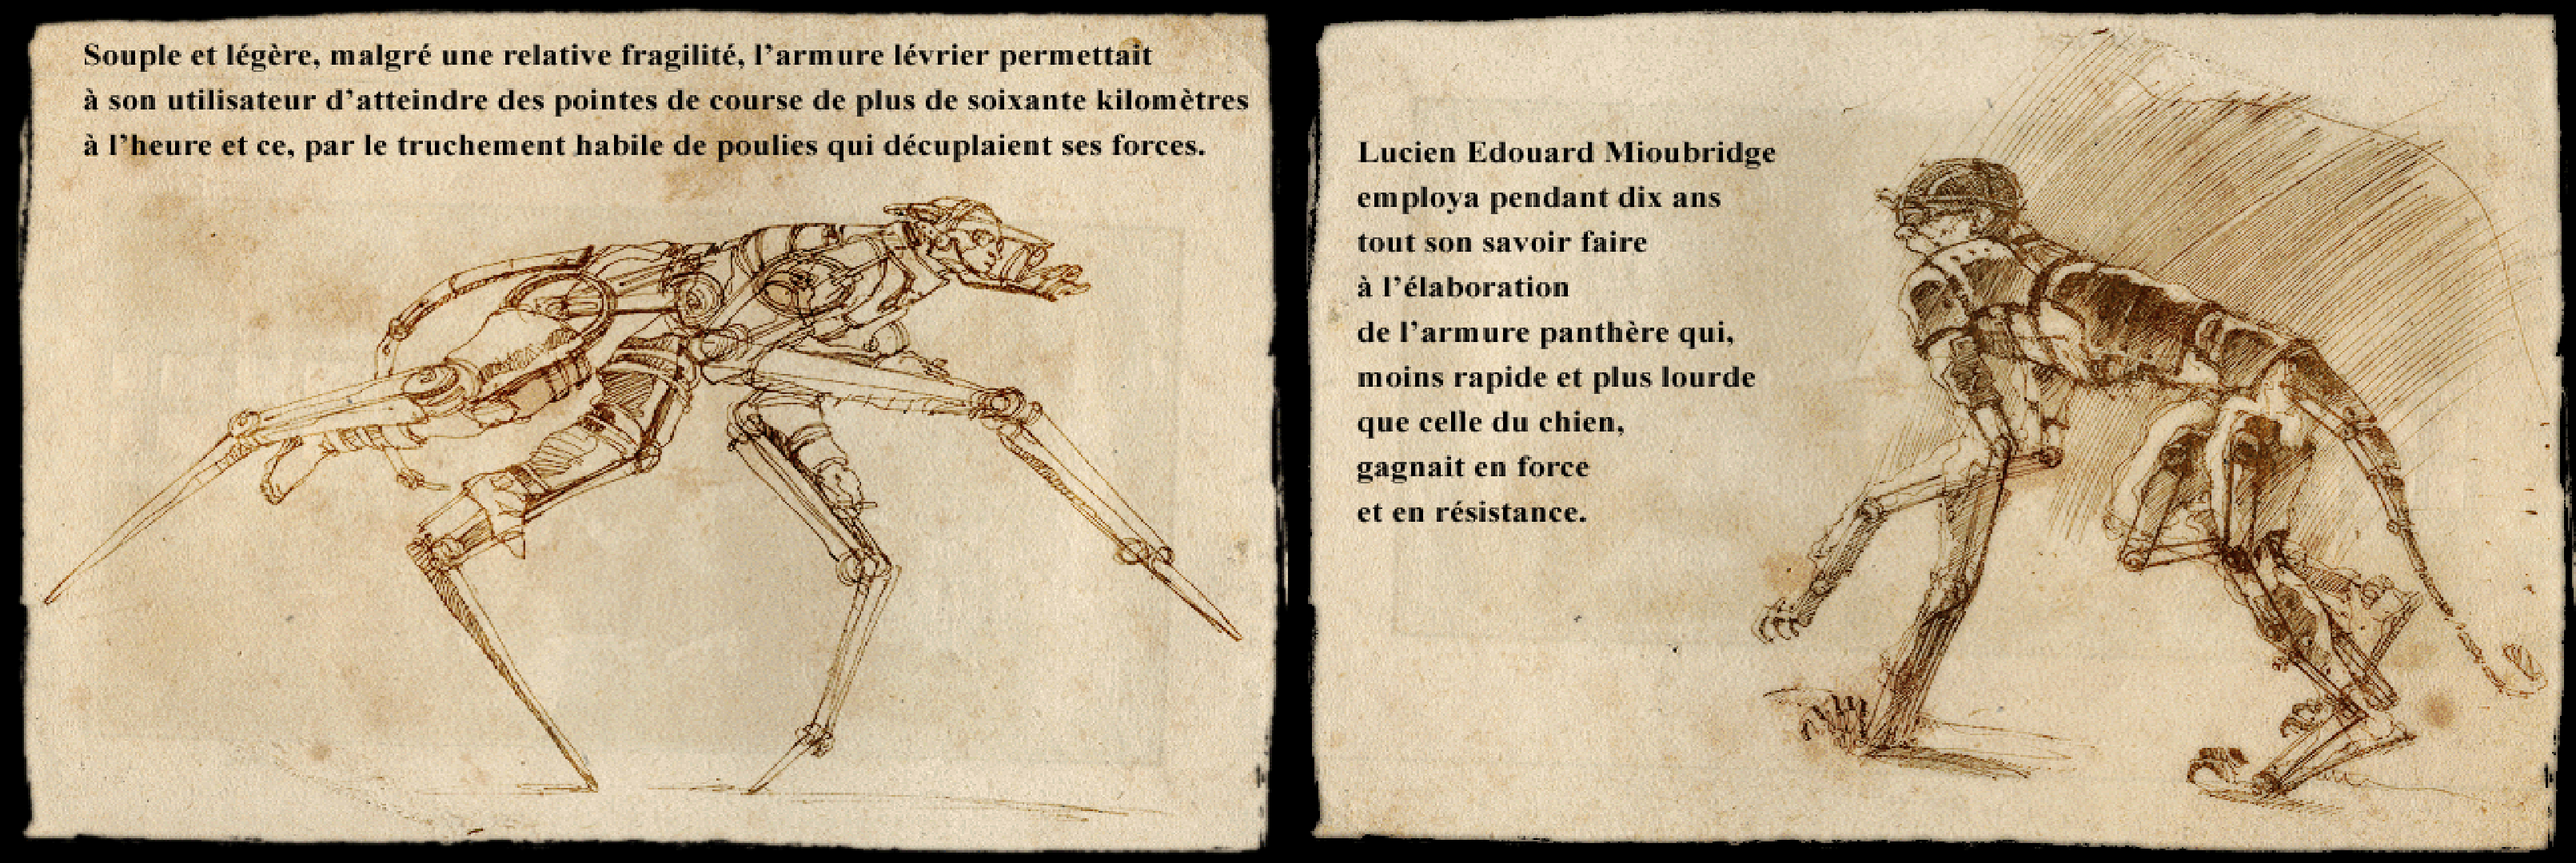 Souple et légère, malgré une relative fragilité, l’armure lévrier permettait
à son utilisateur d’atteindre des pointes de course de plus de soixante kilomètres
à l’heure et ce, par le truchement habile de poulies qui décuplaient ses forces.
Lucien Edouard Mioubridge
employa pendant dix ans
tout son savoir faire
à l’élaboration
de l’armure panthère qui,
moins rapide et plus lourde
que celle du chien,
gagnait en force
et en résistance.